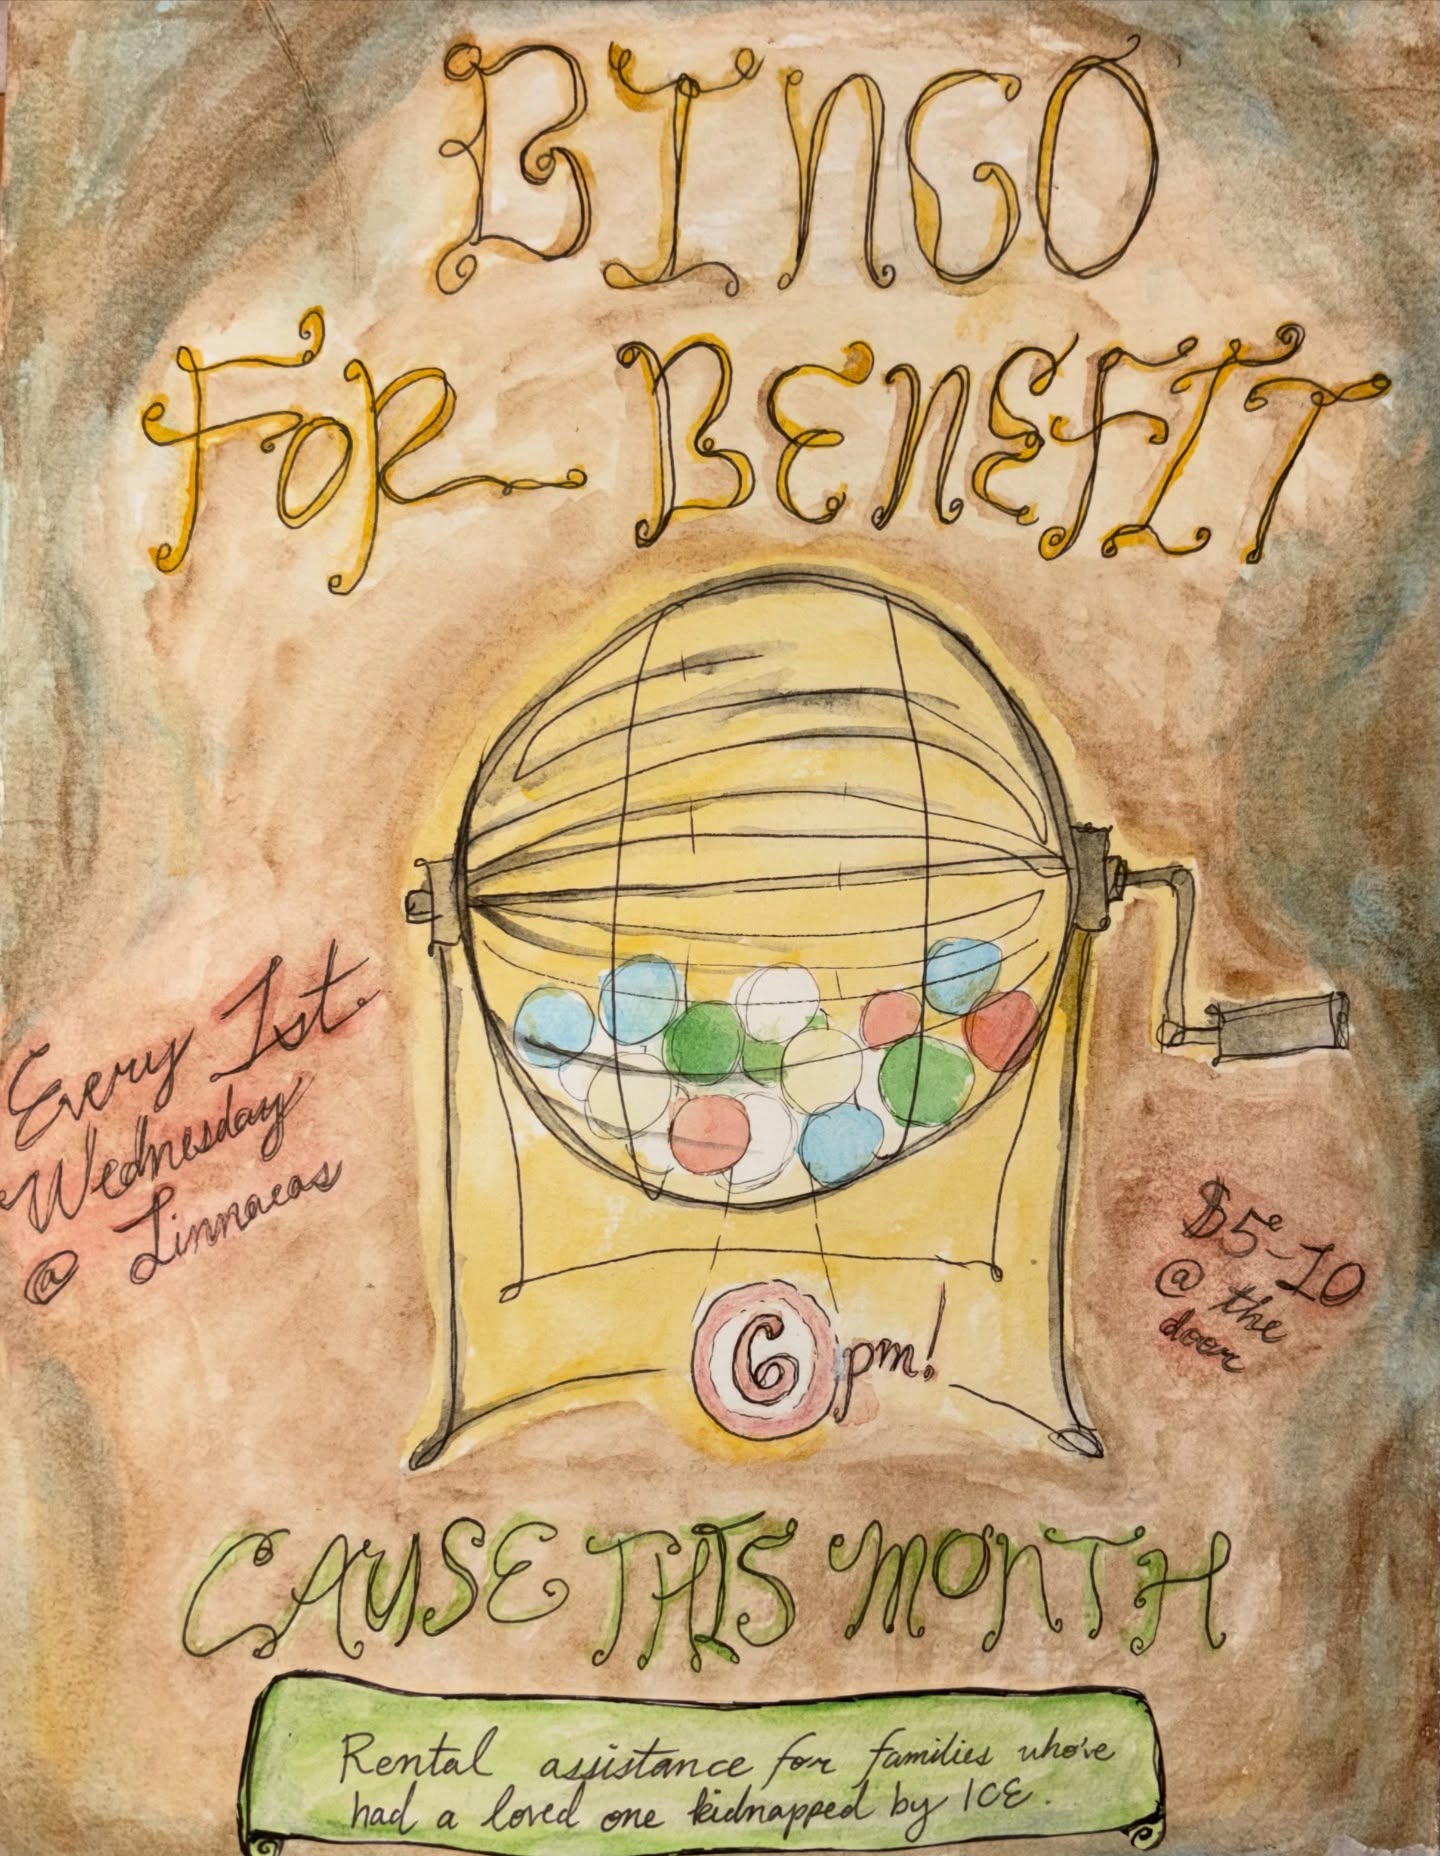 BINGO
FOR BENEFIT
Every 1st
Wednesday
@ Linnaeas
$5-10
@ the
door
6 pm!
CAUSE THIS MONTH
Rental assistance for families who've
had a loved one kidnapped by ICE.